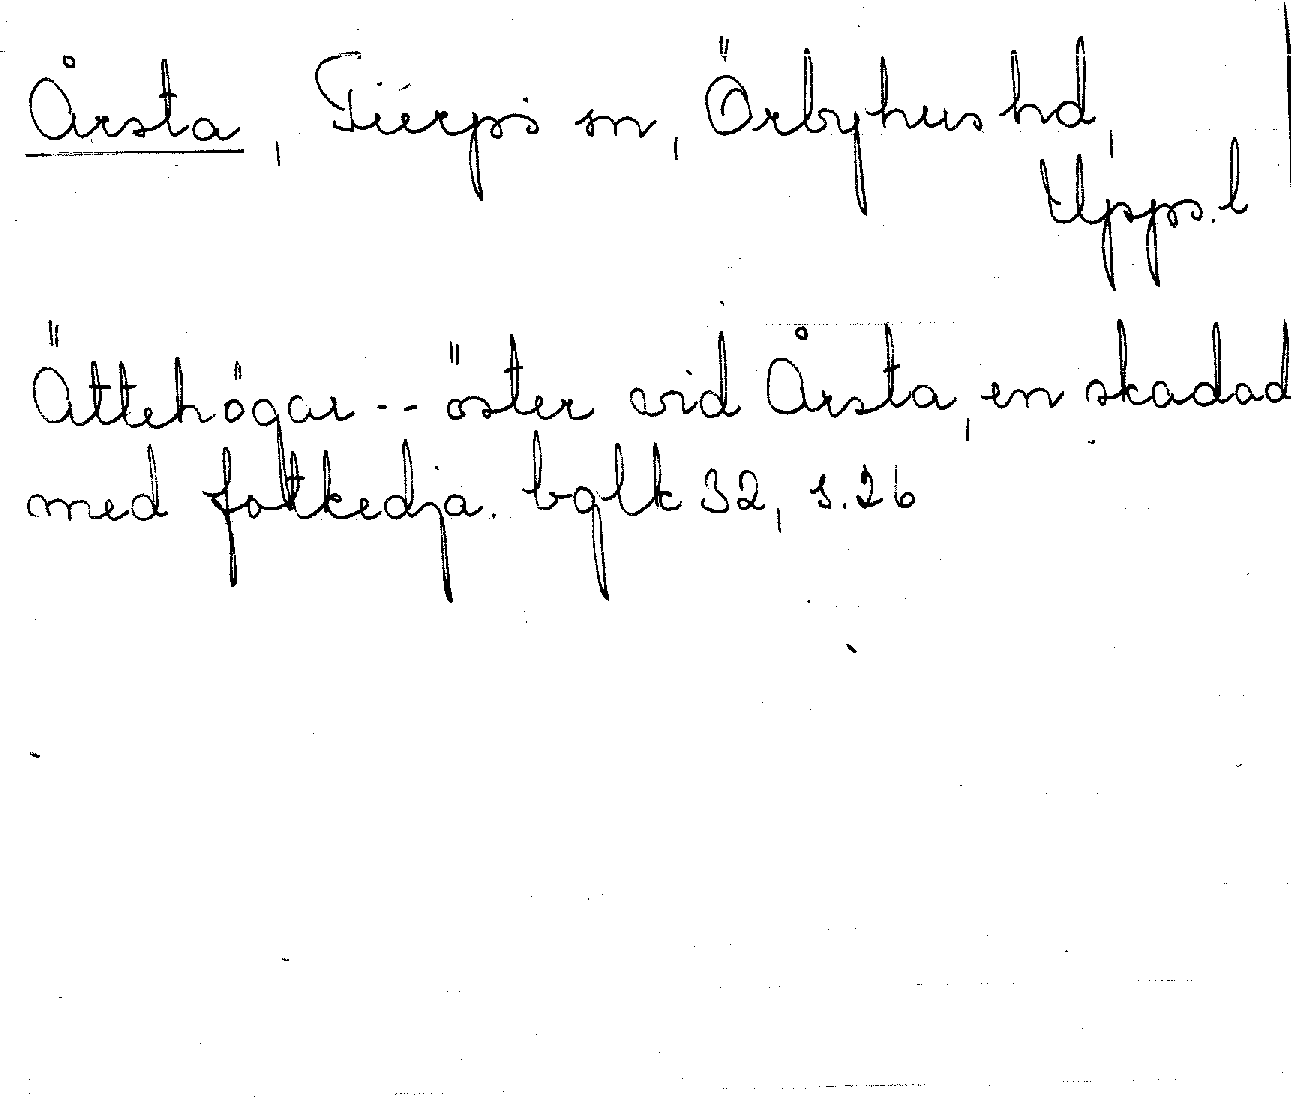 Årsta, Tierps sn, Örbyhus hd,
Upps. l
Ättehögar -- öster vid Årsta, en skadad
med fotkedja. bglk 32, s. 26